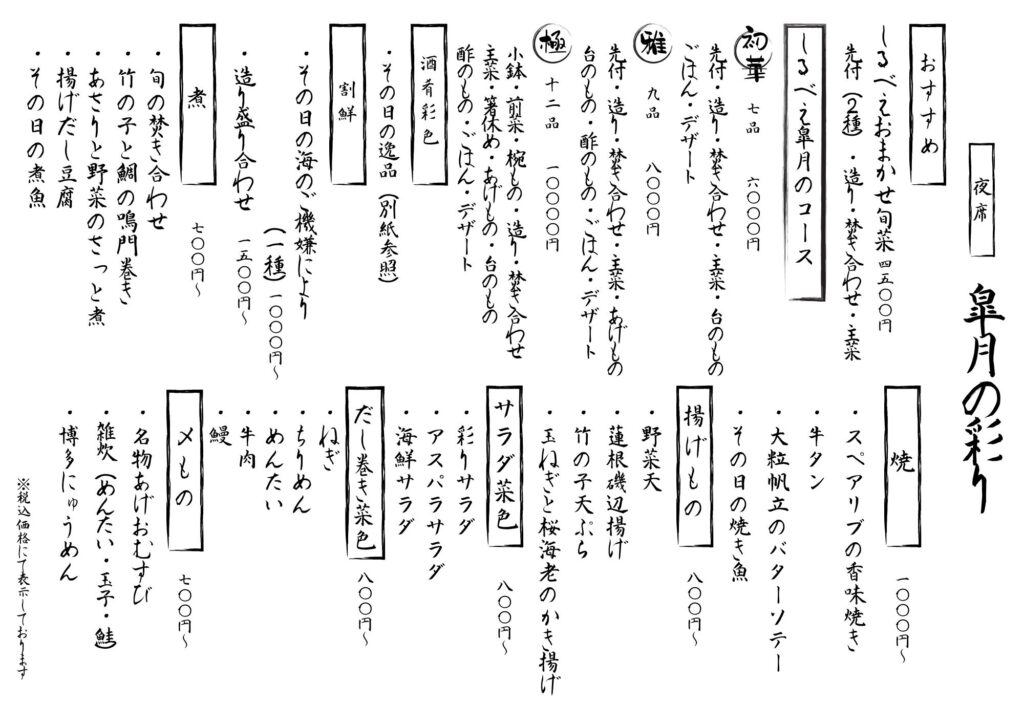 夜席
皐月の彩り
おすすめ
しるべえおまかせ旬菜 四五〇〇円
先付(2種)・造り・焚き合わせ・主菜
しるべえ皐月のコース
初華 七品 六〇〇〇円
先付・造り・焚き合わせ・主菜・台のもの
ごはん・デザート
雅 九品 八〇〇〇円
先付・造り・焚き合わせ・主菜・あげもの
台のもの・酢のもの・ごはん・デザート
極 十二品 一〇〇〇〇円
小鉢・前菜・椀もの・造り・焚き合わせ
主菜・箸休め・あげもの・台のもの
酢のもの・ごはん・デザート
酒肴彩色
・その日の逸品(別紙参照)
割鮮
・その日の海のご機嫌により
(一種)一〇〇〇円〜
・造り盛り合わせ 一五〇〇円〜
煮 七〇〇円〜
・旬の焚き合わせ
・竹の子と鯛の鳴門巻き
・あさりと野菜のさっと煮
・揚げだし豆腐
・その日の煮魚
焼 一〇〇〇円〜
・スペアリブの香味焼き
・牛タン
・大粒帆立のバターソテー
・その日の焼き魚
揚げもの 八〇〇円〜
・野菜天
・蓮根磯辺揚げ
・竹の子天ぷら
・玉ねぎと桜海老のかき揚げ
サラダ菜色 八〇〇円〜
・彩りサラダ
・アスパラサラダ
・海鮮サラダ
だし巻き菜色 八〇〇円〜
・ねぎ
・ちりめん
・めんたい
・牛肉
・鰻
〆もの 七〇〇円〜
・名物あげおむすび
・雑炊(めんたい・玉子・鮭)
・博多にゅうめん
※税込価格にて表示しております